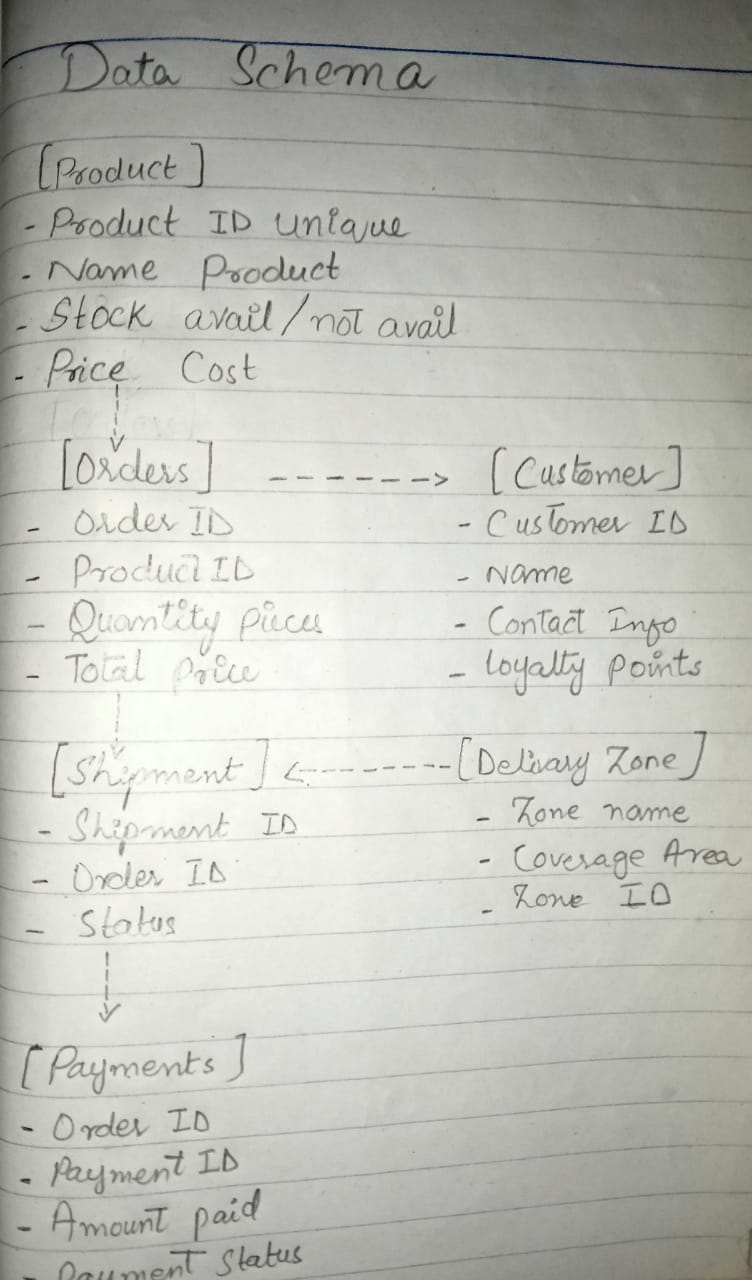 Data Schema
[Product]
- Product ID unique
- Name Product
- Stock avail/not avail
- Price Cost
[Orders] ------> [Customer]
- Order ID
- Product ID
- Quantity pieces
- Total price
- Customer ID
- Name
- Contact Info
- loyalty points
[Shipment] <-------- [Delivary Zone]
- Shipment ID
- Order ID
- Status
- Zone name
- Coverage Area
- Zone ID
[Payments]
- Order ID
- Payment ID
- Amount paid
- Payment Status